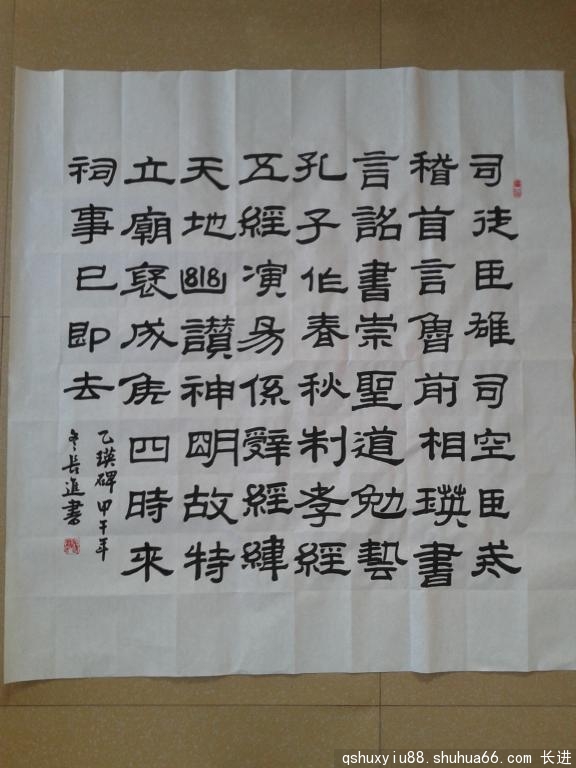 司徒臣雄司空臣戒
稽首言魯前相瑛書
言詔書崇聖道勉藝
孔子作春秋制孝經
五經演易係辭經緯
天地幽讚神明故特
立廟褒成侯四時來
祠事已即去
乙瑛碑甲午年
冬長進書
qshuxyiu88.shuhua66.com 长进